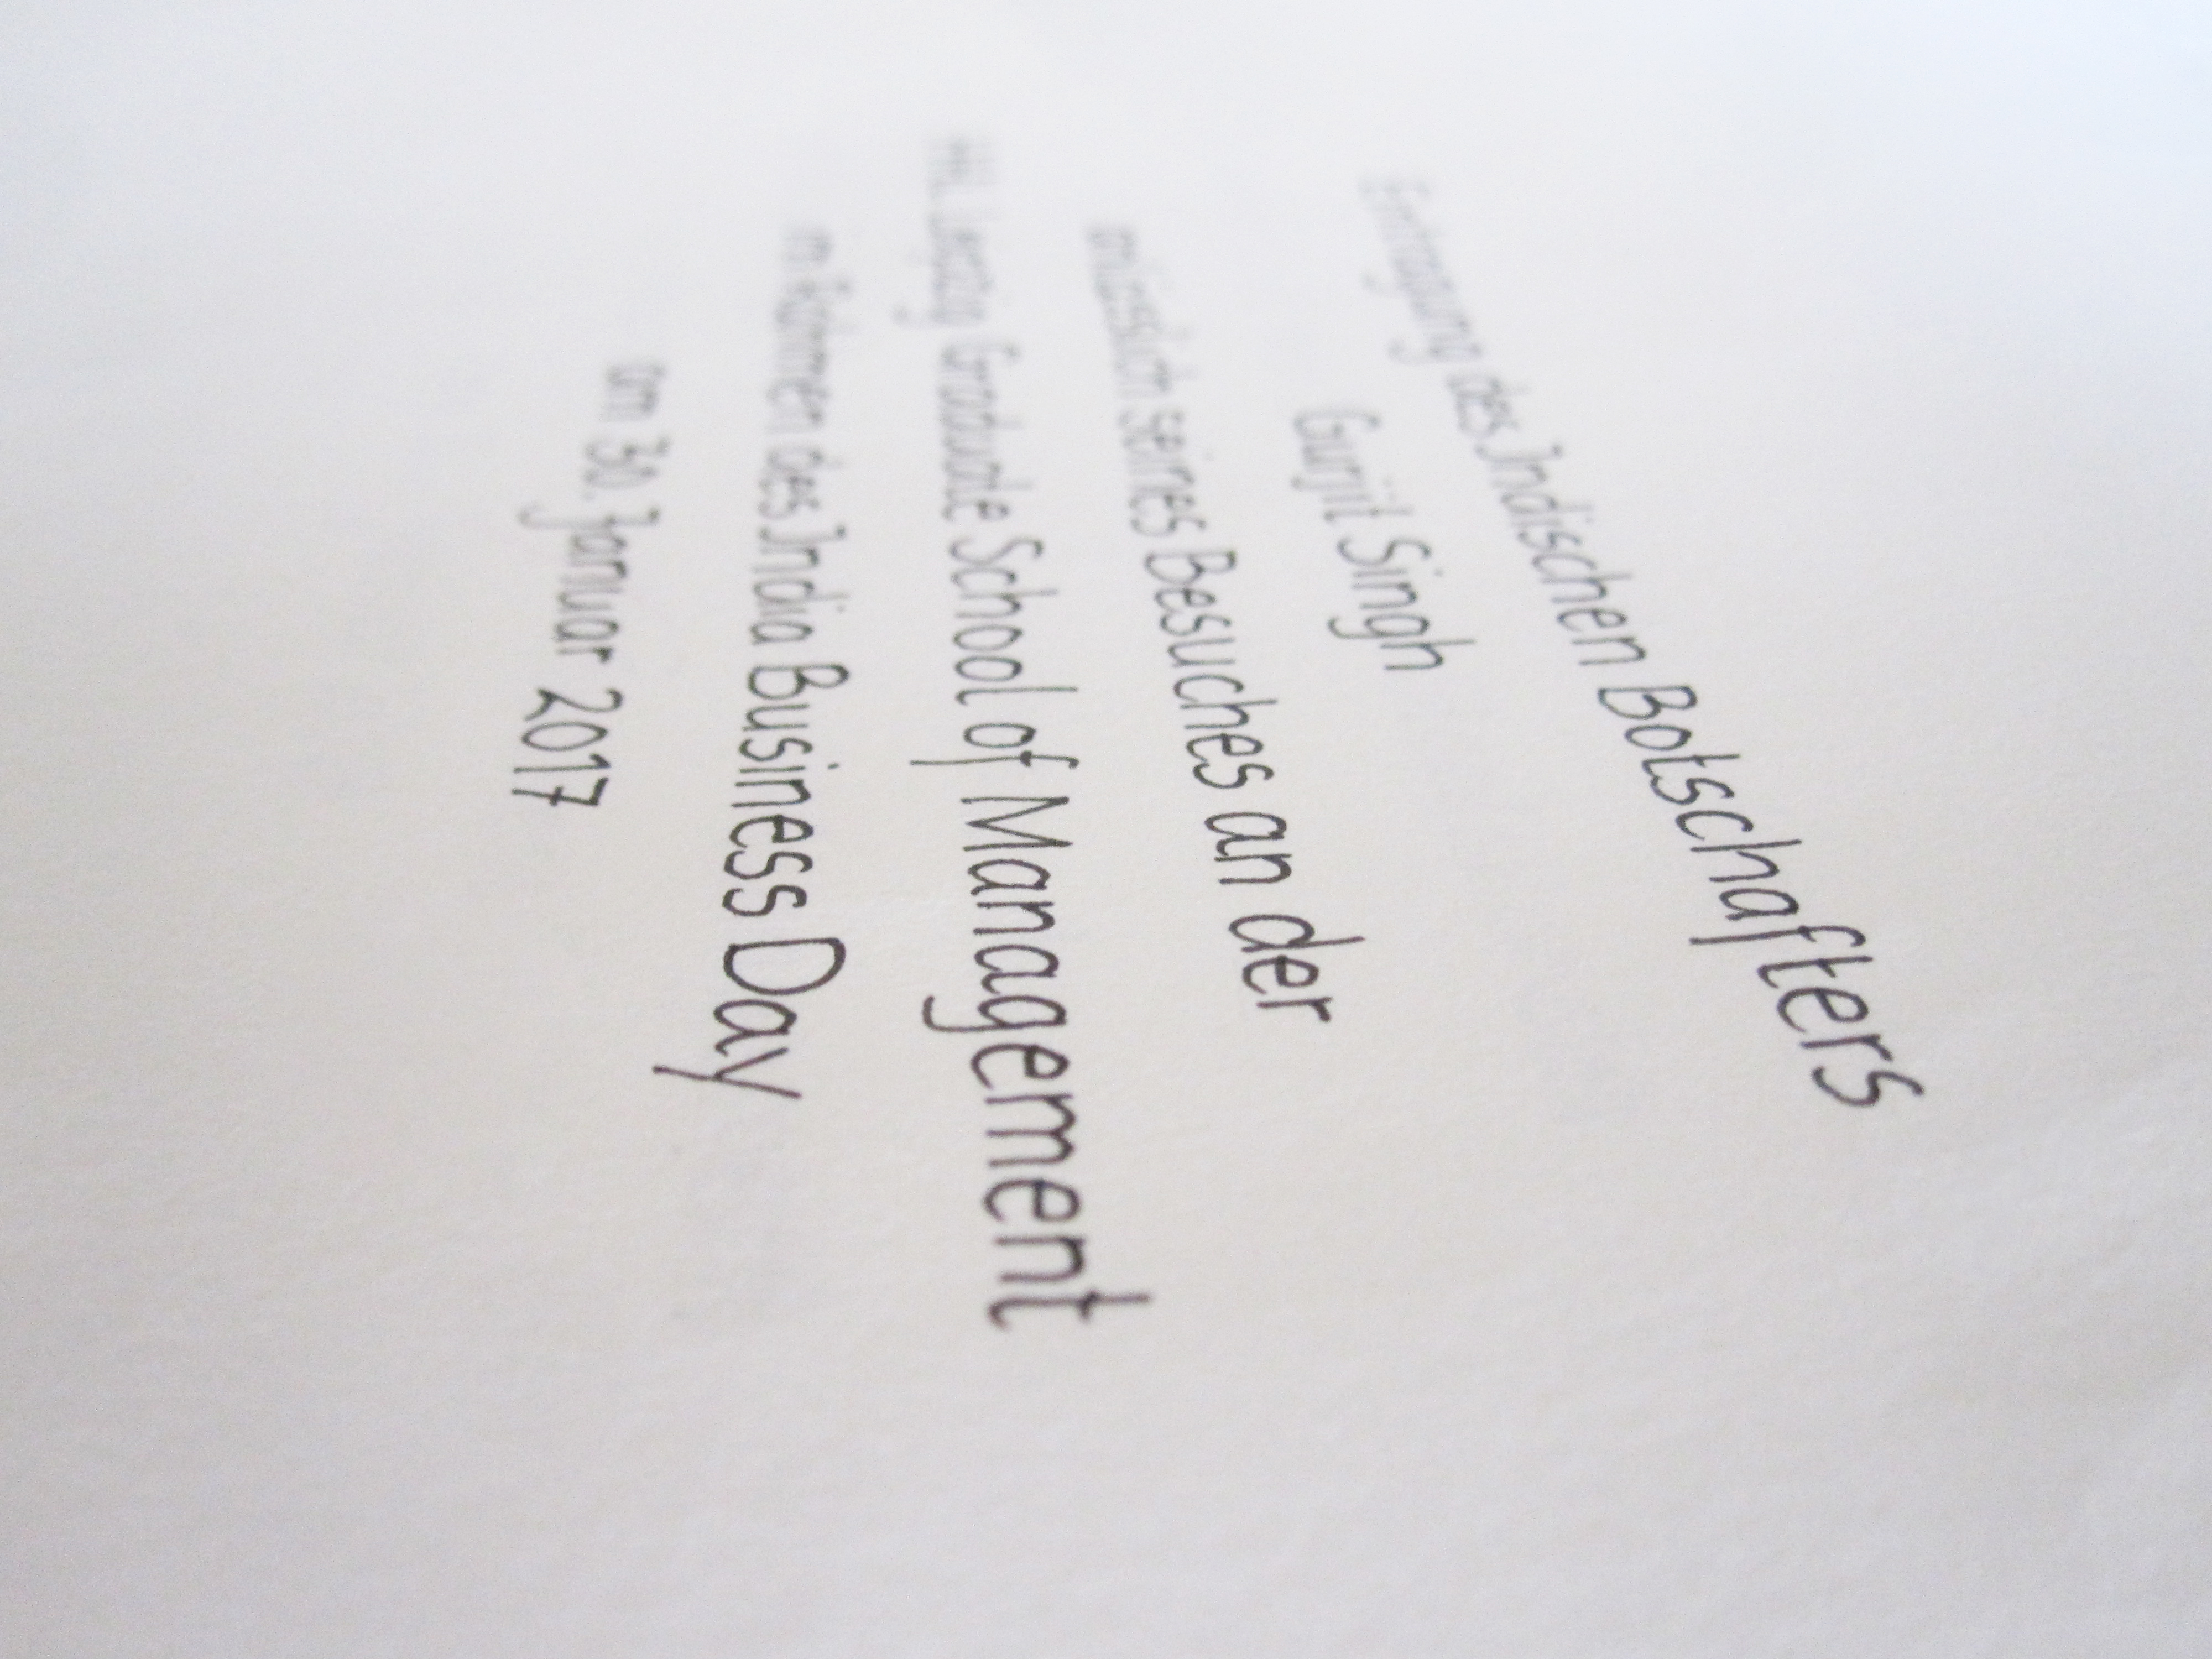 Eintragung des Indischen Botschafters
Gurjit Singh
anlässlich seines Besuches an der
HHL Leipzig Graduate School of Management
im Rahmen des India Business Day
am 30. Januar 2017